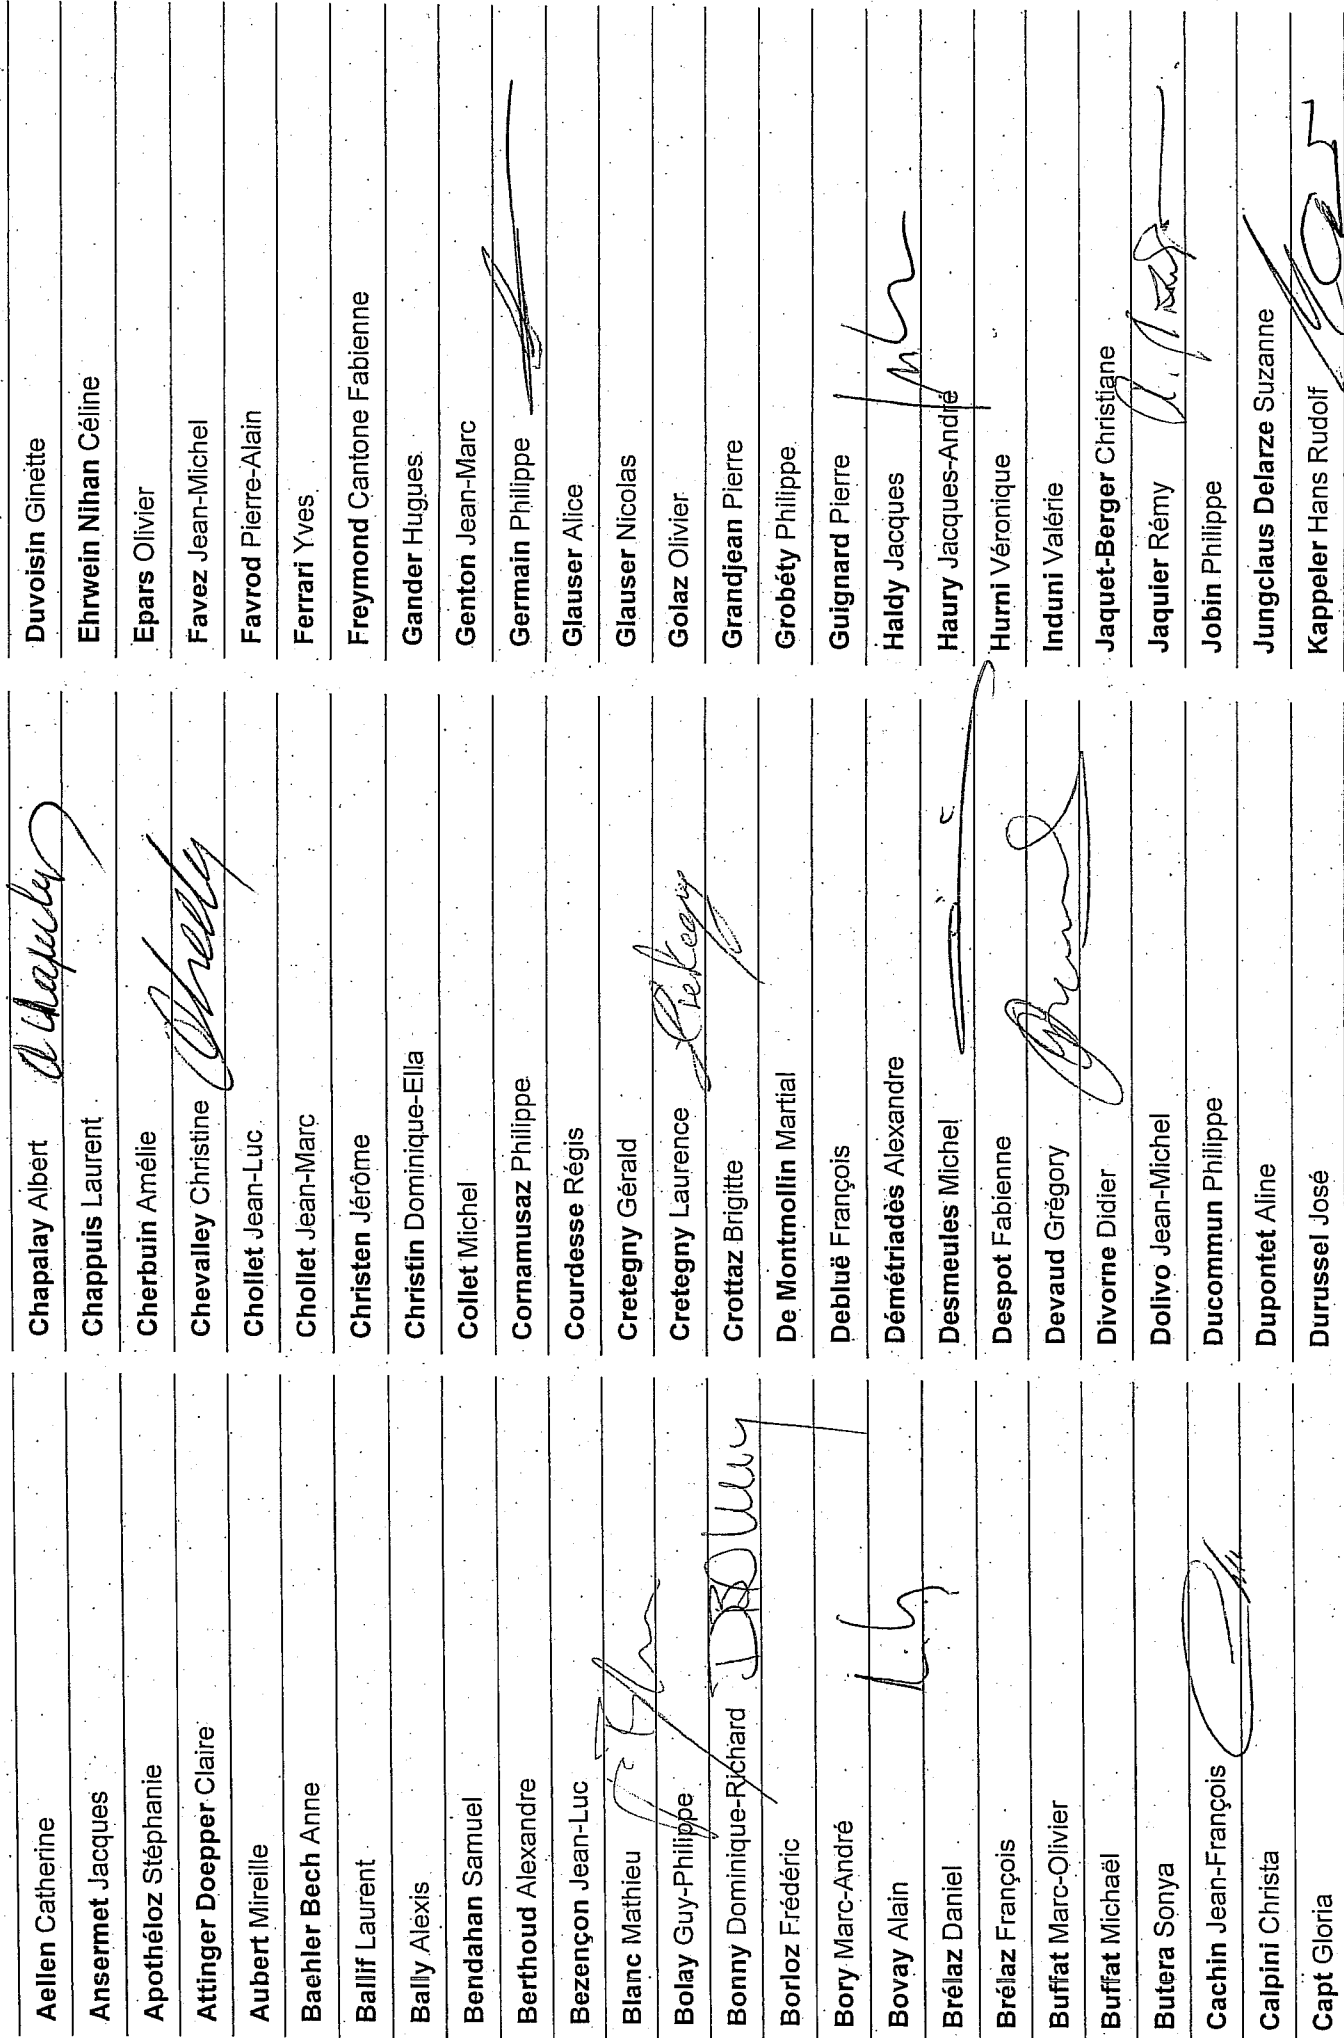 Aellen Catherine
Ansermet Jacques
Apothéloz Stéphanie
Attinger Doepper Claire
Aubert Mireille
Baehler Bech Anne
Ballif Laurent
Bally Alexis
Bendahan Samuel
Berthoud Alexandre
Bezençon Jean-Luc
Blanc Mathieu
Bolay Guy-Philippe
Bonny Dominique-Richard
Borloz Frédéric
Bory Marc-André
Bovay Alain
Brélaz Daniel
Brélaz François
Buffat Marc-Olivier
Buffat Michaël
Butera Sonya
Cachin Jean-François
Calpini Christa
Capt Gloria
Chapalay Albert
Chappuis Laurent
Cherbuin Amélie
Chevalley Christine
Chollet Jean-Luc
Chollet Jean-Marc
Christen Jérôme
Christin Dominique-Ella
Collet Michel
Cornamusaz Philippe
Courdesse Régis
Cretegny Gérald
Cretegny Laurence
Crottaz Brigitte
De Montmollin Martial
Debluë François
Démétriadès Alexandre
Desmeules Michel
Despot Fabienne
Devaud Grégory
Divorne Didier
Dolivo Jean-Michel
Ducommun Philippe
Dupontet Aline
Durussel José
Duvoisin Ginette
Ehrwein Nihan Céline
Epars Olivier
Favez Jean-Michel
Favrod Pierre-Alain
Ferrari Yves
Freymond Cantone Fabienne
Gander Hugues
Genton Jean-Marc
Germain Philippe
Glauser Alice
Glauser Nicolas
Golaz Olivier
Grandjean Pierre
Grobéty Philippe
Guignard Pierre
Haldy Jacques
Haury Jacques-André
Hurni Véronique
Induni Valérie
Jaquet-Berger Christiane
Jaquier Rémy
Jobin Philippe
Jungclaus Delarze Suzanne
Kappeler Hans Rudolf